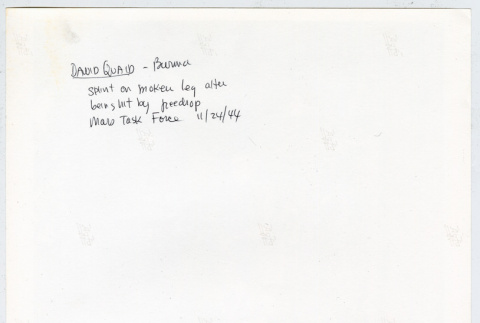 DAVID QUAID - Burma
splint on broken leg after
being hit by freedrop
Mars Task Force 11/24/44